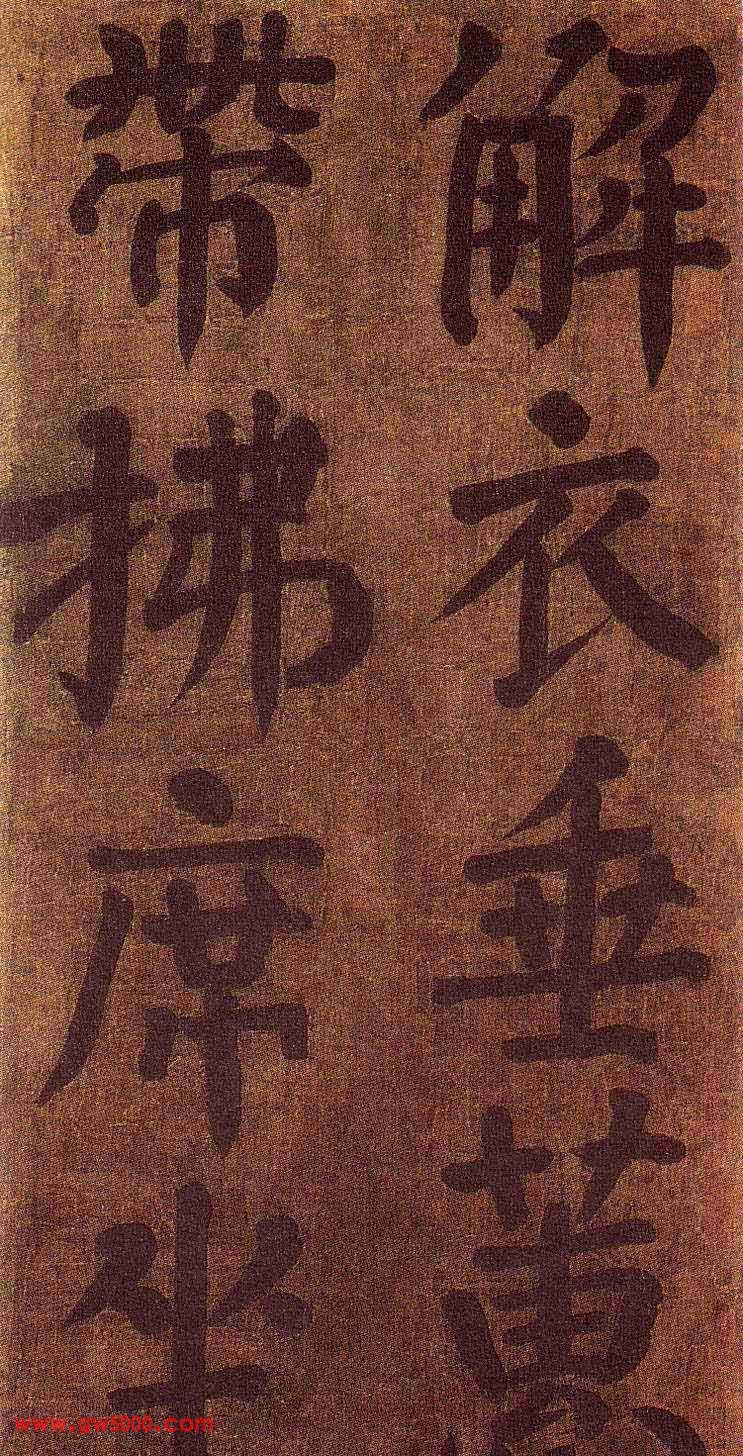 解衣垂蕙
帶拂席坐
www.gw5000.com